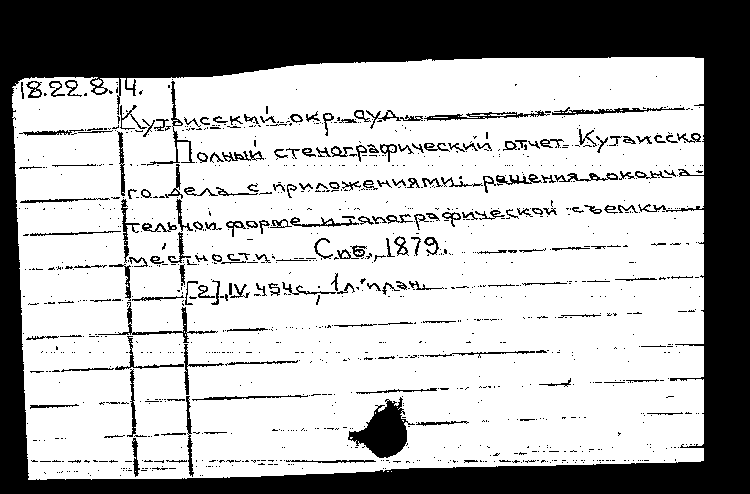 18.22.8.14.
Кутаисский окр. суд.
Полный стенографический отчет Кутаисско-
го дела с приложениями: решения в оконча-
тельной форме и топографической съемки
местности. Спб., 1879.
[2], IV, 454 с., 1 л. план.